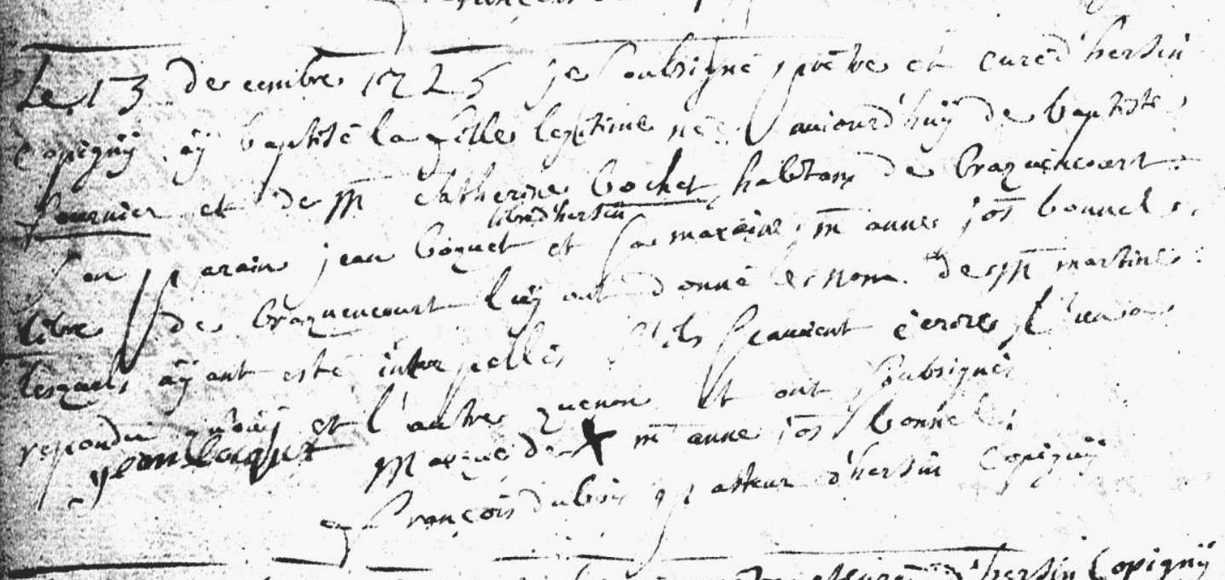 Le 13 decembre 1725 je soubsigné prêtre et curé d'hersin
Copigny aÿ baptisé la fille legitime née aujourd'huÿ de baptiste
fournier et de M catherine bochet habitans de braquencourt
libre d'hersin
son parain jean boquet et sa maraine m anne jos bonnel
libre de braquencourt luÿ ont donné le nom de M martine
lesquels aÿant esté interpellés s'ils scavoient ecrire l'un a
repondu qu'ouy et l'autre que non et ont soubsigné
jean boquet marque de X m anne jos bonnel
françois dubois pasteur d'hersin Copigny
d'hersin Copigny